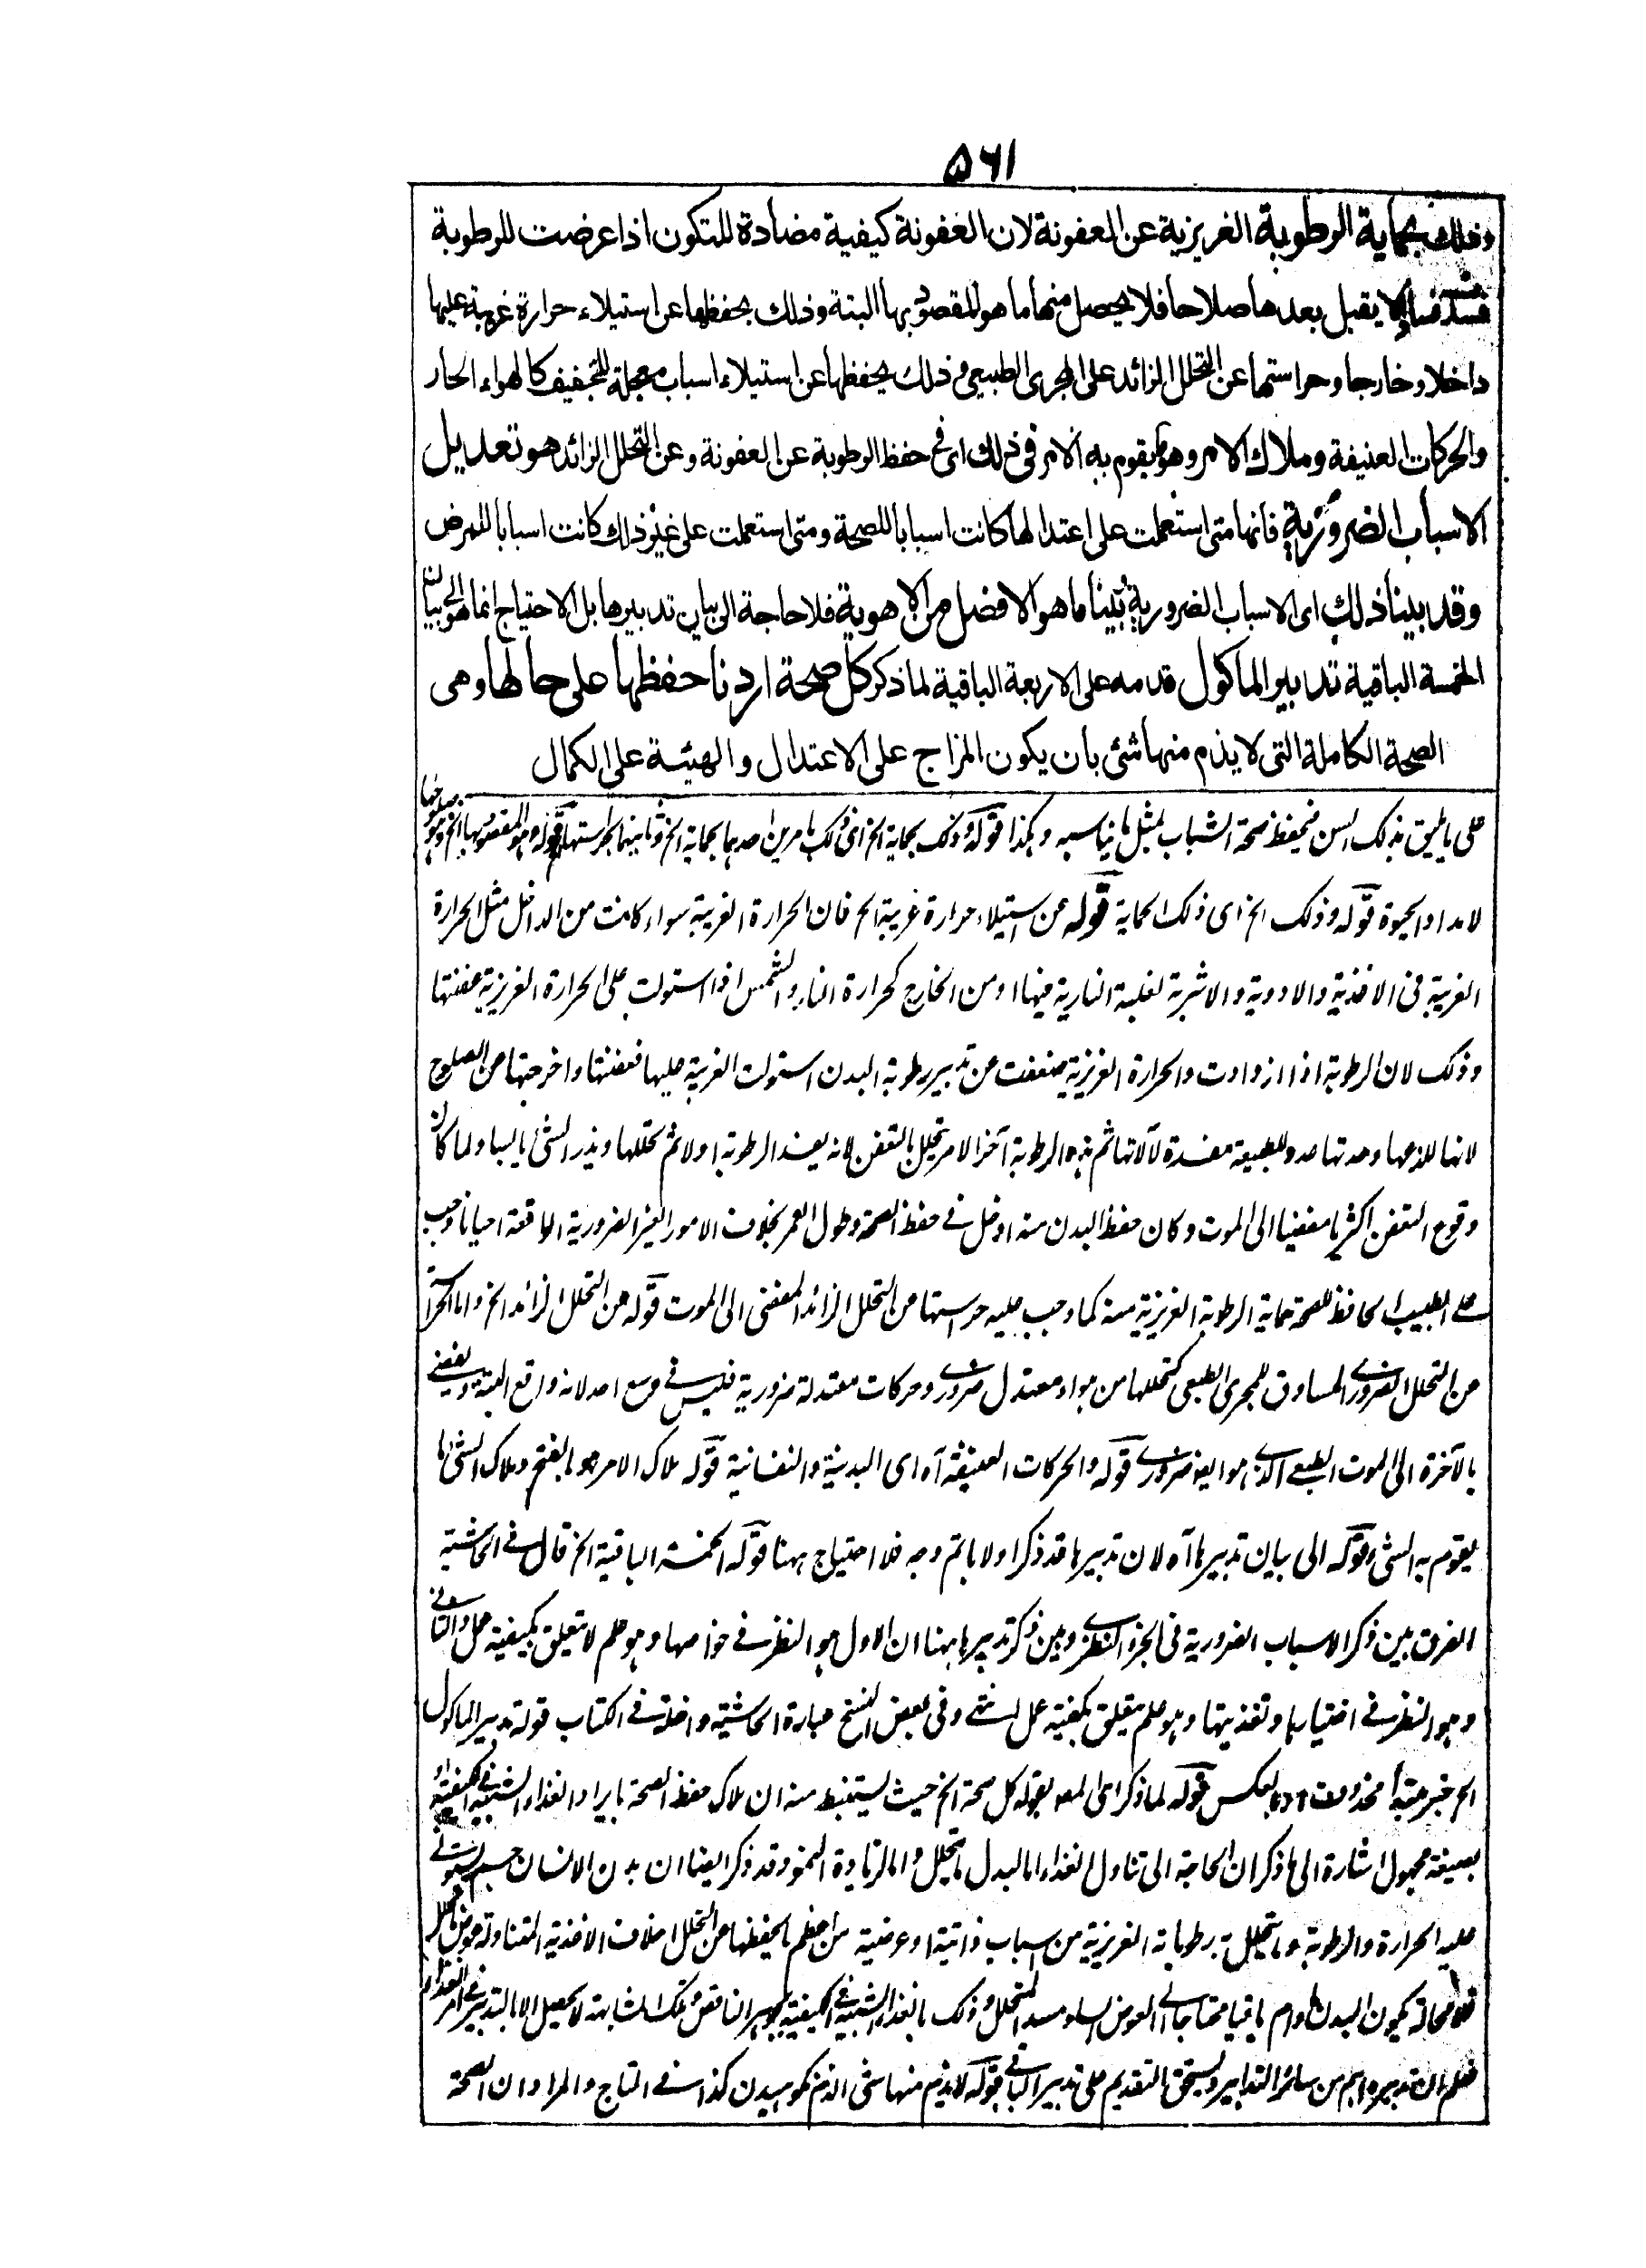 ۵۶۱
وذلك بحماية الرطوبة الغريزية عن العفونة لان العفونة كيفية مضادة للتكون اذا عرضت للرطوبة
فسدت فسادا لا يقبل بعدها صلاحا فلا يحصل منها ما هو المقصود بها البتة وذلك بحفظها عن استيلاء حرارة غريبة عليها
داخلا و خارجا وحراستها عن التحلل الزائد على المجرى الطبيعي وذلك بحفظها عن استيلاء اسباب معجلة للتجفيف كالهواء الحار
والحركات العنيفة وملاك الامر وهو ما يقوم به الامر في ذلك اى فى حفظ الرطوبة عن العفونة و عن التحلل الزائد هو تعديل
الاسباب الضرورية فانها متى استعملت على اعتدالها كانت اسبابا للصحة ومتى استعملت على غير ذلك كانت اسبابا للمرض
وقد بينا ذلك اى الاسباب الضرورية بينا ما هو الافضل من الاهوية فلا حاجة الى بيان تدبيرها بل الاحتياج انما هو الى بيان
الخمسة الباقية تدبير الماكول قدمه على الاربعة الباقية لما ذكر كل صحة اردنا حفظها على حالها وهى
الصحة الكاملة التى لا يذم منها شئ بان يكون المزاج على الاعتدال والهيئة على الكمال
على ما يليق بذلك السن فيحفظ صحة الشباب بمثل ما يناسبه و هكذا قوله وذلك بحماية الخ اى ذلك بامرين احدهما بحماية الخ وثانيهما بحراستها قوله ما هو المقصود بها الخ وهو
لامداد الحيوة قوله وذلك الخ اى ذلك الحماية قوله عن استيلاء حرارة غريبة الخ فان الحرارة الغريبة سواء كانت من الداخل مثل الحرارة
الغريبة فى الاغذية والادوية والاشربة لغلبة النارية فيها او من الخارج كحرارة النار والشمس اذا استولت على الحرارة الغريزية عفنتها
وذلك لان الرطوبة اذا ازدادت والحرارة الغريزية ضعفت عن تدبير رطوبة البدن استولت الغريبة عليها فعفنتها واخرجتها عن الصلوح
لانها للذعها وحدتها عدو للطبيعة مفسدة لآلاتها ثم هذه الرطوبة آخر الامر تتحلل بالتعفن لانه يفسد الرطوبة اولا ثم تحللها ويذر الشئ يابسا ولما كان
وقوع التعفن اكثريا مفضيا الى الموت وكان حفظ البدن منه ادخل فى حفظ الصحة وطول العمر بخلاف الامور الغير الضرورية الواقعة احيانا وجب
على الطبيب الحافظ للصحة حماية الرطوبة الغريزية منه كما وجب عليه حراستها من التحلل الزائد المفضى الى الموت قوله عن التحلل الزائد الخ واما الحراسة
عن التحلل الضروري المساوق للمجرى الطبعى كتحللها من هواء معتدل ضرورى وحركات معتدلة ضرورية فليس فى وسع احد لانه واقع البتة ويفضى
بالآخرة الى الموت الطبيعي الذى هو ايضا ضروري قوله والحركات العنيفة آه اى البدنية والنفسانية قوله ملاك الامر هو بالفتح وملاك الشئ ما
يقوم به الشئ قوله الى بيان تدبيرها آه لان تدبيرها قد ذكر اولا باتم وجه فلا احتياج ههنا قوله الخمسة الباقية الخ قال فى الحاشية
الفرق بين ذكر الاسباب الضرورية فى الجزء النظرى وبين ذكر تدبيرها ههنا ان الاول هو النظر فى خواصها وهو علم لا يتعلق بكيفية عمل والثانى
وهو النظر فى اختيارها وتغذيتها وهو علم يتعلق بكيفية عمل شئ وفى بعض النسخ عبارة الحاشية داخلة فى الكتاب قوله تدبير الماكول
الخ خبر مبتدأ محذوف او بالعكس قوله لما ذكر اى المص بقوله كل صحة الخ حيث يستنبط منه ان ملاك حفظ الصحة بايراد الغذاء الشبيه فى الكيفية
بصيغة مجهول اشارة الى ما ذكر ان الحاجة الى تناول الغذاء اما لبدل ما يتحلل واما لزيادة النمو وقد ذكر ايضا ان بدن الانسان جسم
عليه الحرارة والرطوبة وما يتحلل به رطوباته الغريزية من اسباب ذاتية او عرضية من اعظم ما يحفظها عن التحلل اخلاف الاغذية المتناولة عوض ما تحلل
فلا محالة يكون البدن ما دام باقيا محتاجا الى العوض الساد مسد المتحلل وذلك بالغذاء الشبيه فى الكيفية وتلك المشابهة لا يحصل الا بالتدبير فى امر الغذاء
فعلم ان تدبيره اهم من سائر التدابير ويستحق التقديم على تدبير الباقى قوله لا يذم منها شئ الذم نكوهيدن كذا فى التاج والمراد ان الصحة